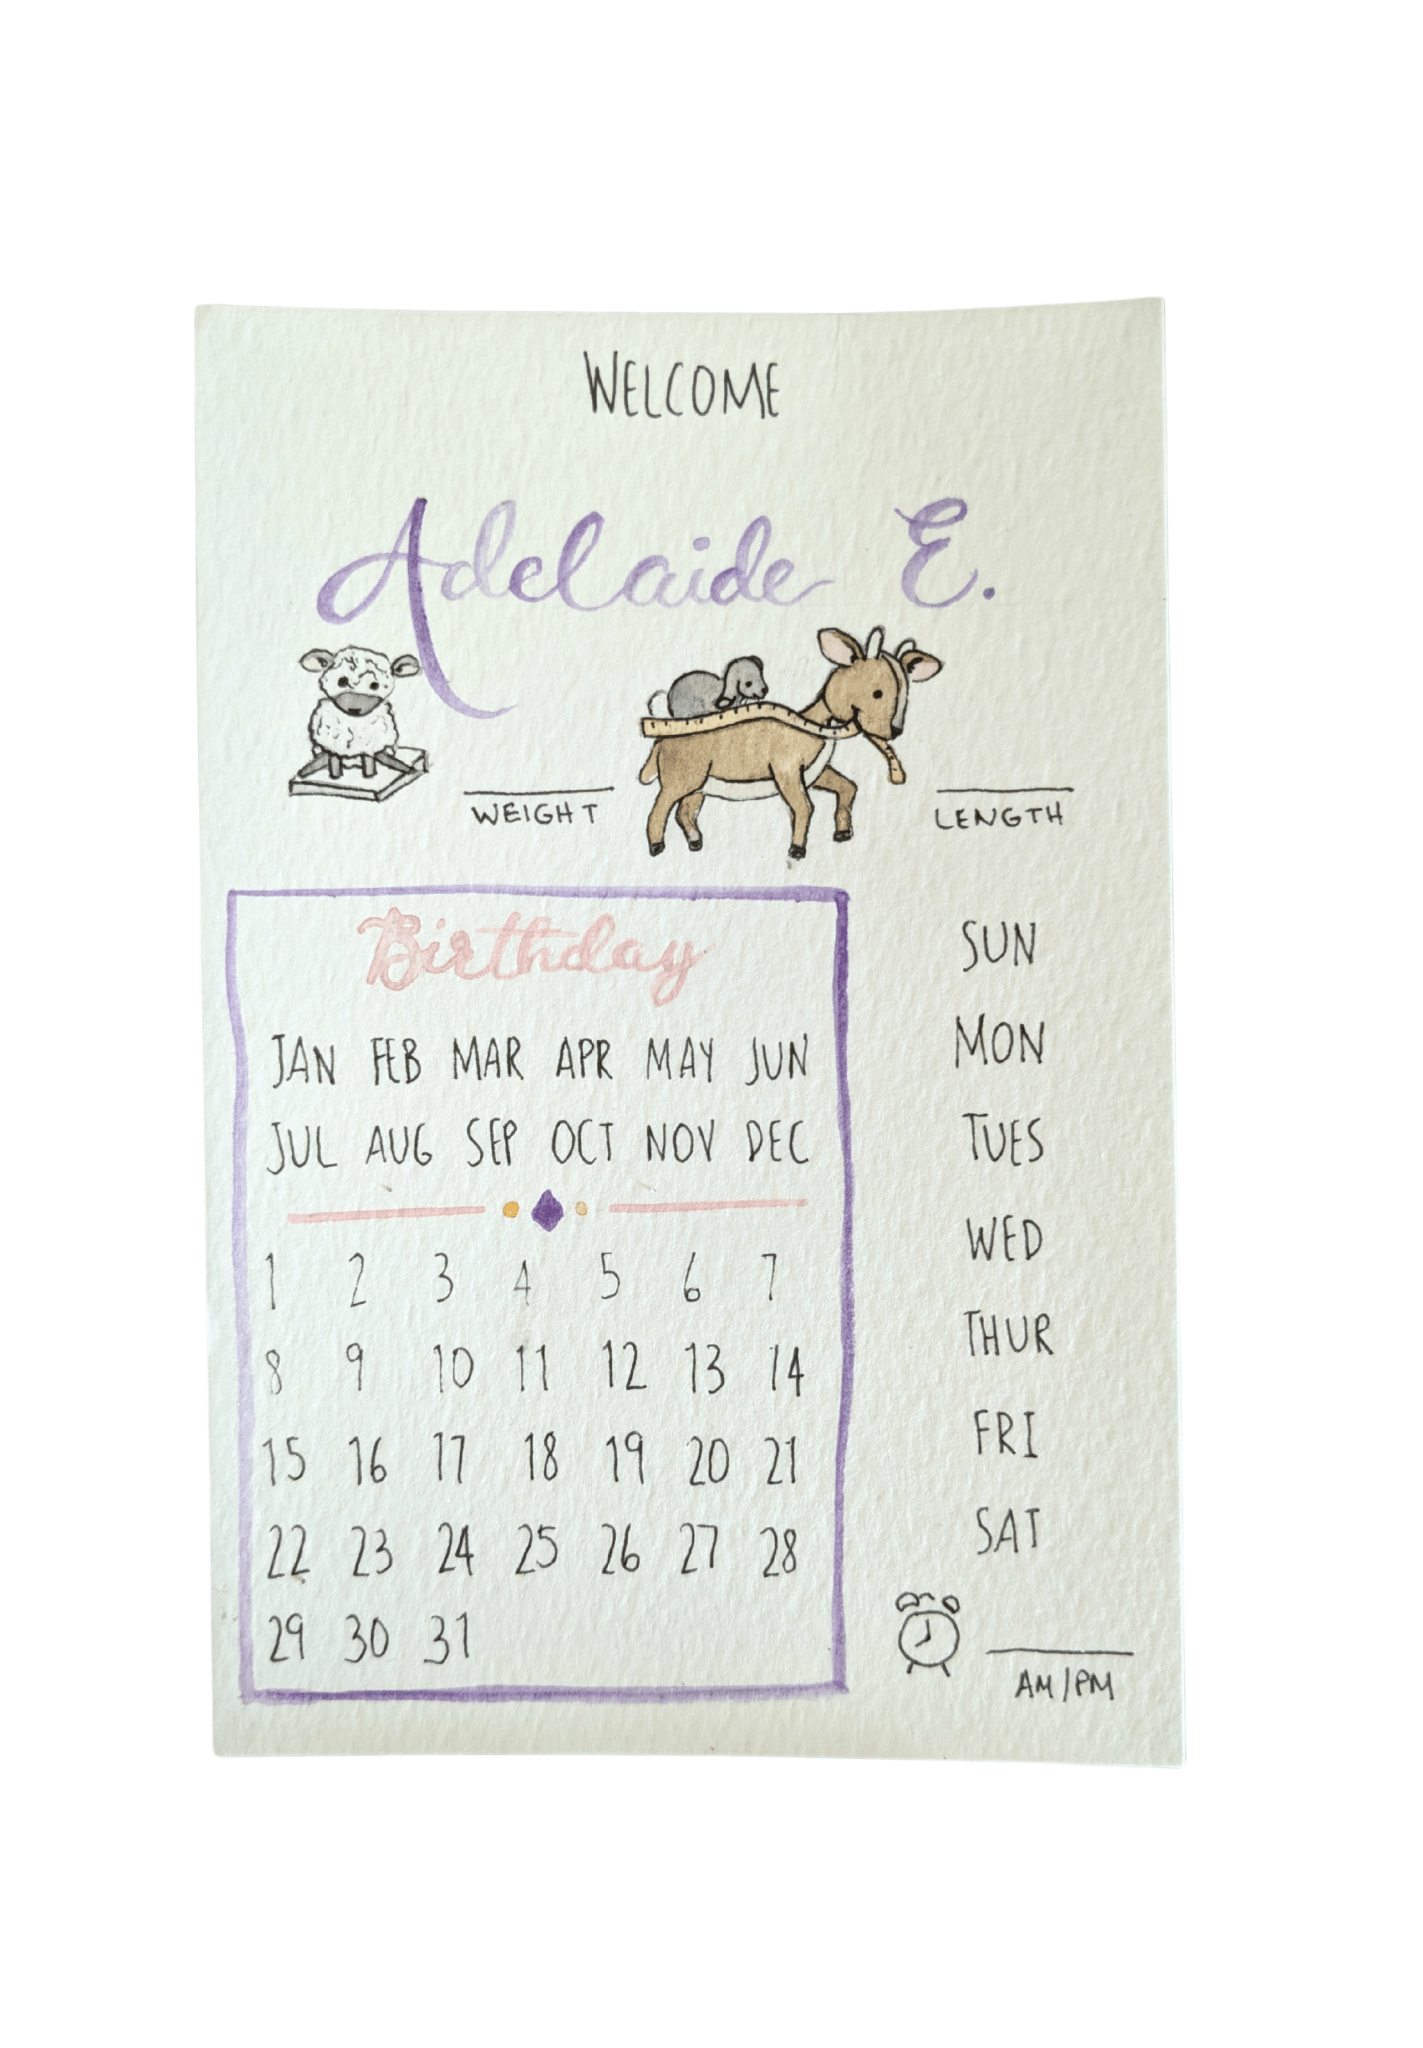 WELCOME
Adelaide E.
WEIGHT
LENGTH
Birthday
JAN FEB MAR APR MAY JUN
JUL AUG SEP OCT NOV DEC
1 2 3 4 5 6 7
8 9 10 11 12 13 14
15 16 17 18 19 20 21
22 23 24 25 26 27 28
29 30 31
SUN
MON
TUES
WED
THUR
FRI
SAT
AM/PM